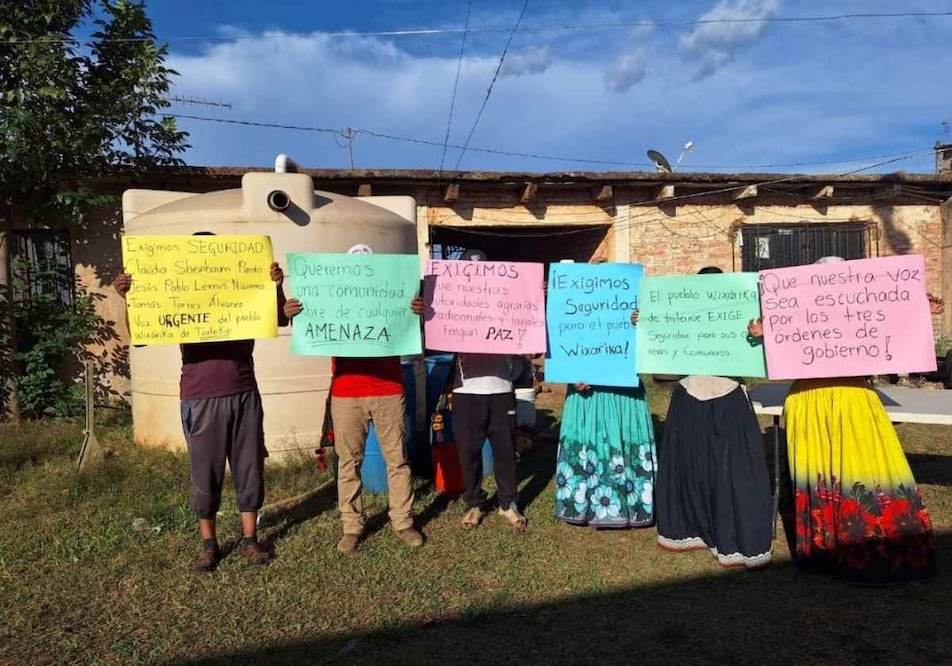 Exigimos SEGURIDAD
Claudia Sheinbaum Pardo
Jesús Pablo Lemus Navarro
Tomás Torres Álvarez
Voz URGENTE del pueblo
Wixárika de Tateikie
Queremos
una comunidad
libre de cualquier
AMENAZA
EXIGIMOS
que nuestras
autoridades agrarias
tradicionales y locales
tengan PAZ!
¡Exigimos
Seguridad
para el pueblo
Wixarika!
El pueblo Wixárika
de tateikie EXIGE
Seguridad para sus
y Comuneros
¡Que nuestra voz
sea escuchada
por los tres
órdenes de
gobierno!